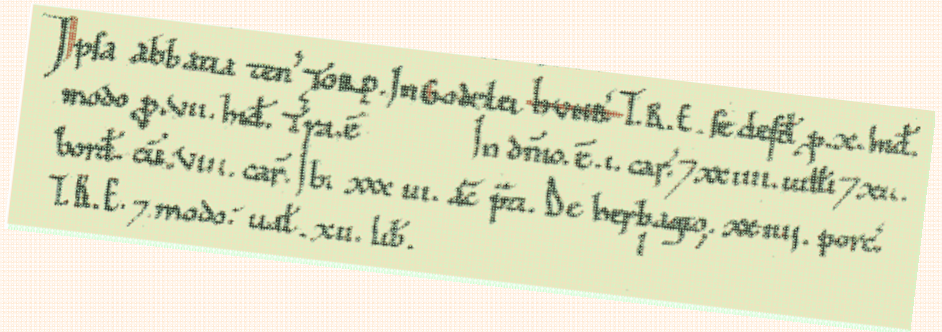 Ipsa abbatia ten' Torp. In Godelei hund' T.R.E. se defđ. p̱. x. hiđ.
modo p̱. vii. hiđ. Tr̄a. ē In dn̄io. ē. i. car̄. 7 xxiiii. uiłłi 7 xii.
borđ. cū. viii. car̄. Ibi xxx iii. āc p̄ti. De herbagio; xxiiij. porc̄.
T.R.E. 7 modo: uał. xii. lib̄.